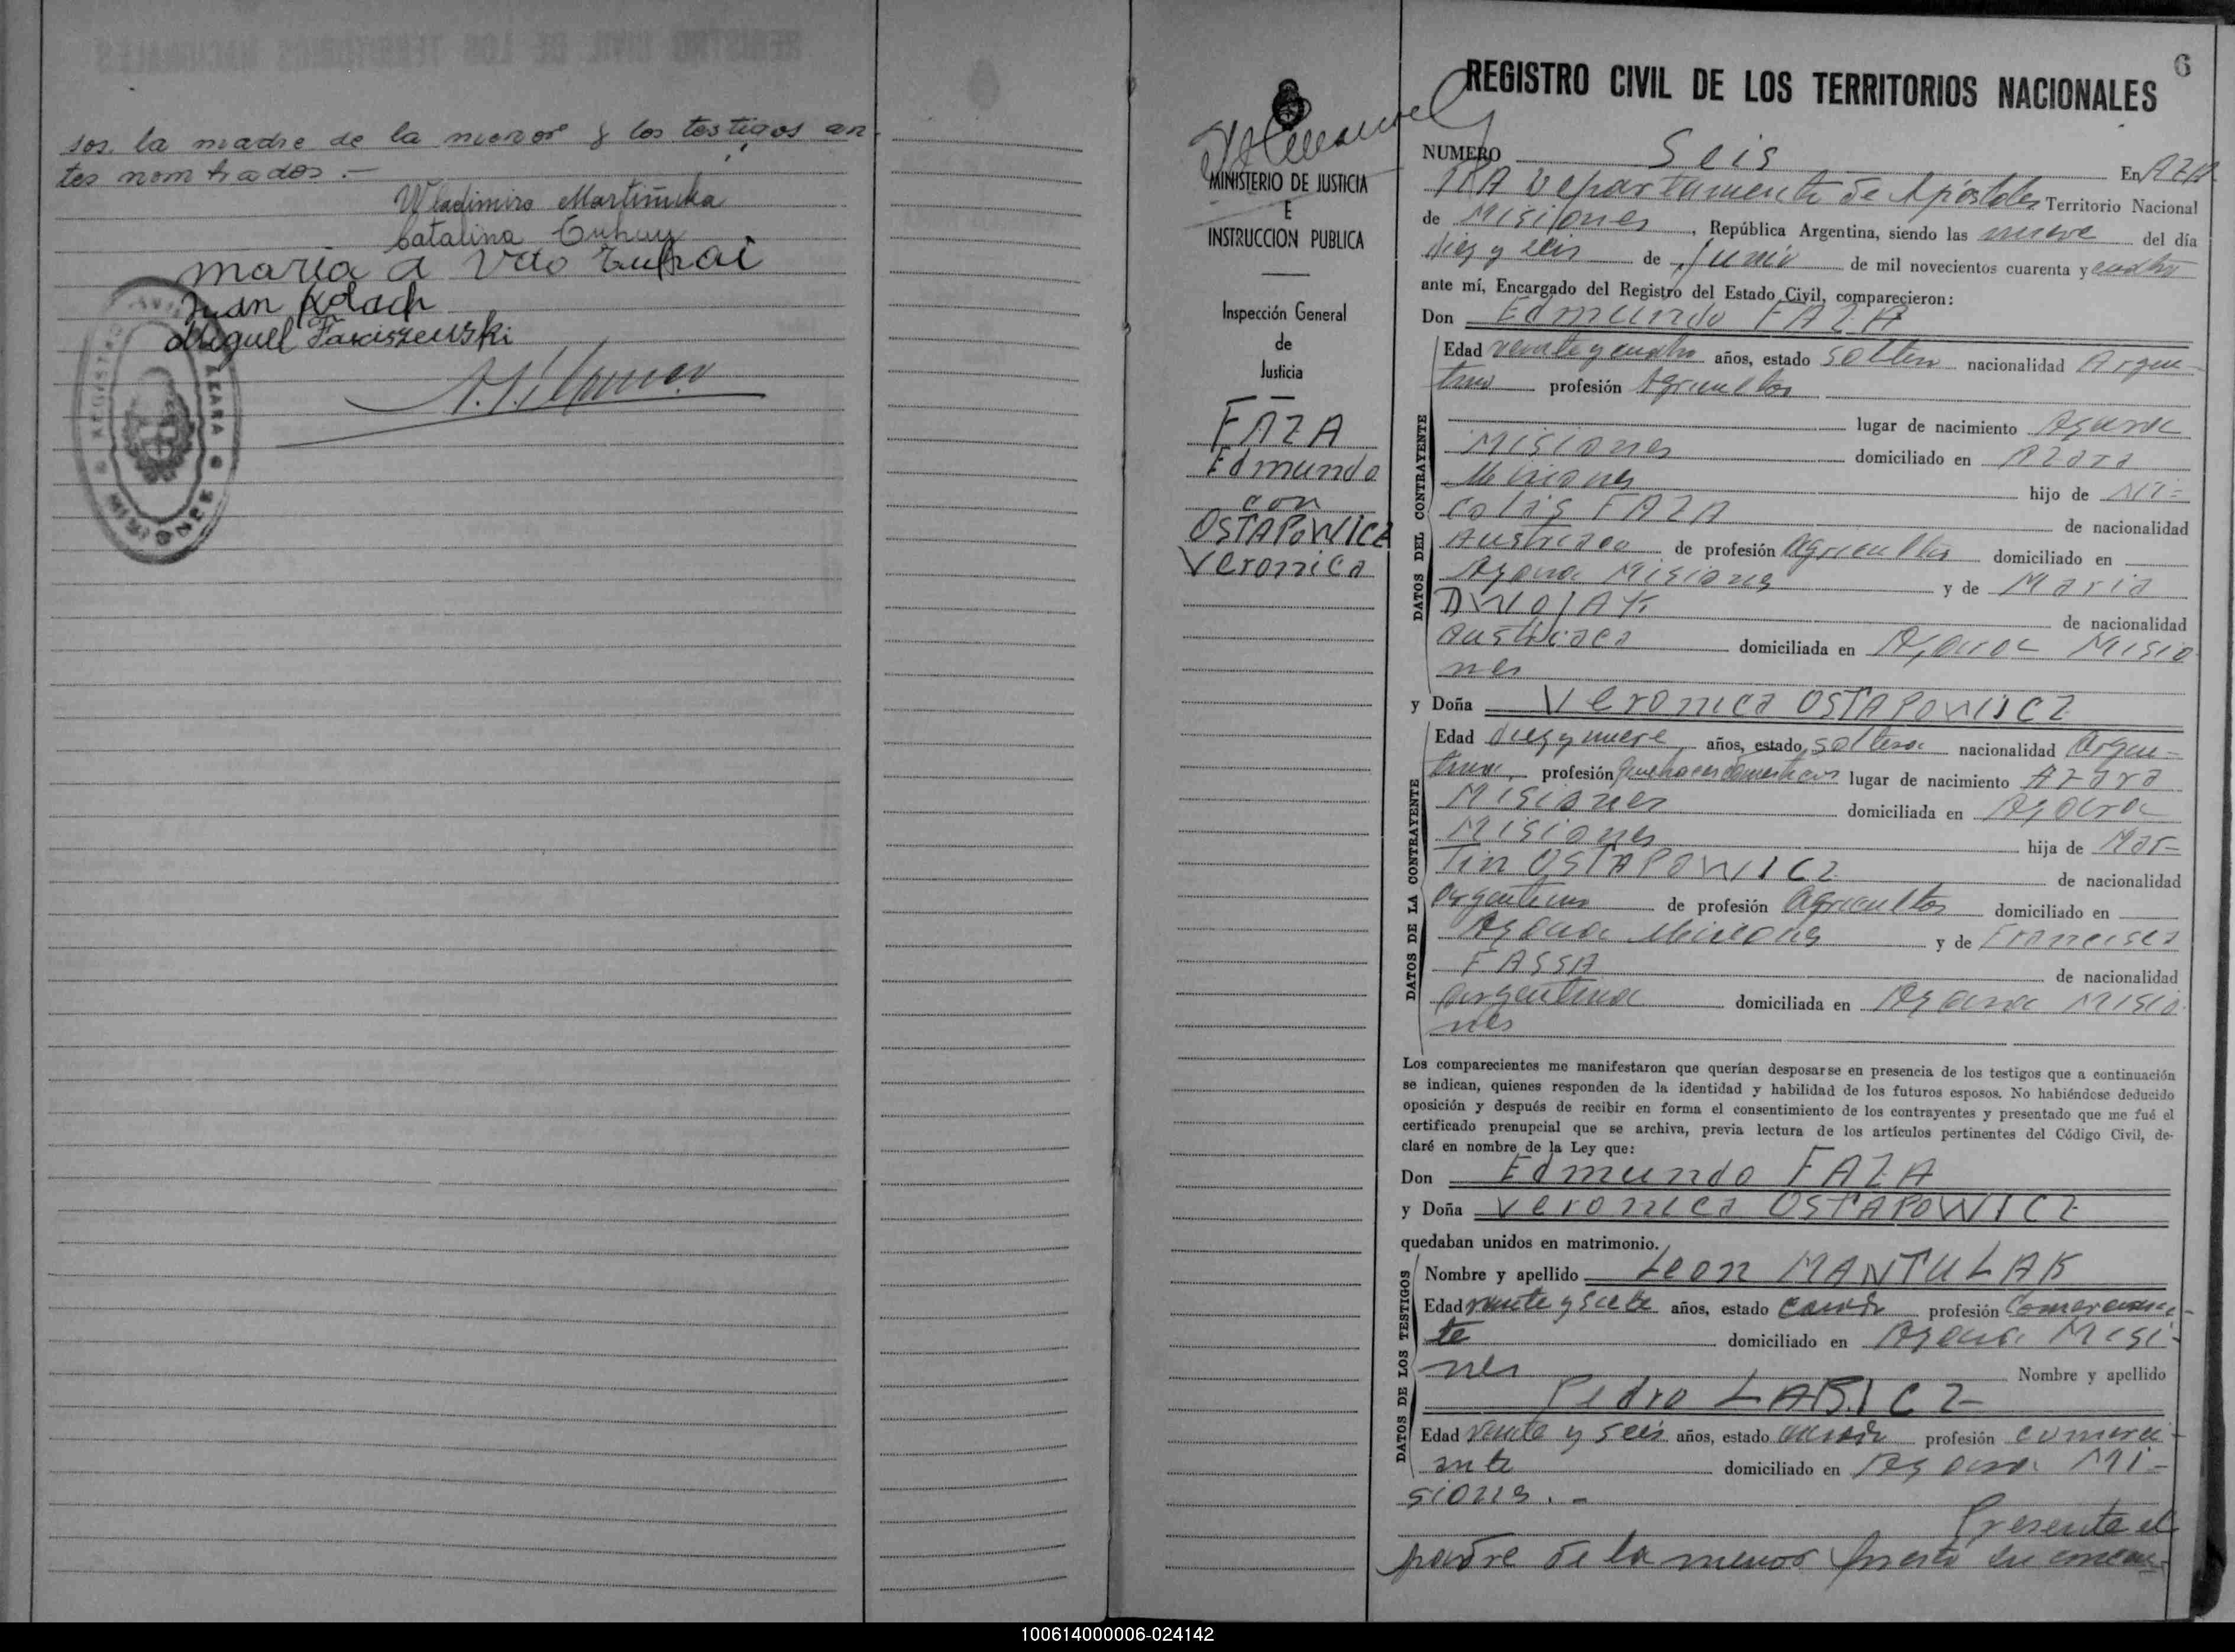 sos, la madre de la menor y los testigos an-
tes nombrados.-
Wladimiro Martinuka
Catalina Tuhay
maria d Vdo Tuhai
Juan Kolach
Miguel Fariszewski
AZARA
MISIONES
6
REGISTRO CIVIL DE LOS TERRITORIOS NACIONALES
MINISTERIO DE JUSTICIA
E
INSTRUCCION PUBLICA
Inspección General
de
Justicia
FAZA
Edmundo
con
OSTAPOWICZ
Veronica
NUMERO Seis En AZA
RA Departamento de Apóstoles Territorio Nacional
de Misiones, República Argentina, siendo las nueve del día
diez y seis de Junio de mil novecientos cuarenta y cuatro
ante mí, Encargado del Registro del Estado Civil, comparecieron:
Don Edmundo FAZA
DATOS DEL CONTRAYENTE
Edad veinte y cuatro años, estado soltero nacionalidad Argen-
tino profesión Agricultor
lugar de nacimiento Azara
Misiones domiciliado en Azara
Misiones hijo de Ni-
colás FAZA de nacionalidad
Austriaco de profesión Agricultor domiciliado en
Azara Misiones y de Maria
DWOJAK de nacionalidad
Austriaca domiciliada en Azara Misio
nes
y Doña Veronica OSTAPOWICZ
DATOS DE LA CONTRAYENTE
Edad diez y nueve años, estado soltera nacionalidad Argen-
tina, profesión quehaceres domesticos lugar de nacimiento Azara
Misiones domiciliada en Azara
Misiones hija de Mar-
tin OSTAPOWICZ de nacionalidad
argentino de profesión Agricultor domiciliado en
Azara Misiones y de Francisca
FASSA de nacionalidad
argentina domiciliada en Azara Misio
nes
Los comparecientes me manifestaron que querían desposarse en presencia de los testigos que a continuación
se indican, quienes responden de la identidad y habilidad de los futuros esposos. No habiéndose deducido
oposición y después de recibir en forma el consentimiento de los contrayentes y presentado que me fué el
certificado prenupcial que se archiva, previa lectura de los artículos pertinentes del Código Civil, de-
claré en nombre de la Ley que:
Don Edmundo FAZA
y Doña Veronica OSTAPOWICZ
quedaban unidos en matrimonio.
DATOS DE LOS TESTIGOS
Nombre y apellido Leon MANTULAK
Edad veinte y siete años, estado casado profesión Comercian-
te domiciliado en Azara Misi-
nes Nombre y apellido
Pedro LABICZ
Edad veinte y seis años, estado casado profesión comerci-
ante domiciliado en Azara Mi-
siones.-
Presente el
padre de la menor prestó su
100614000006-024142